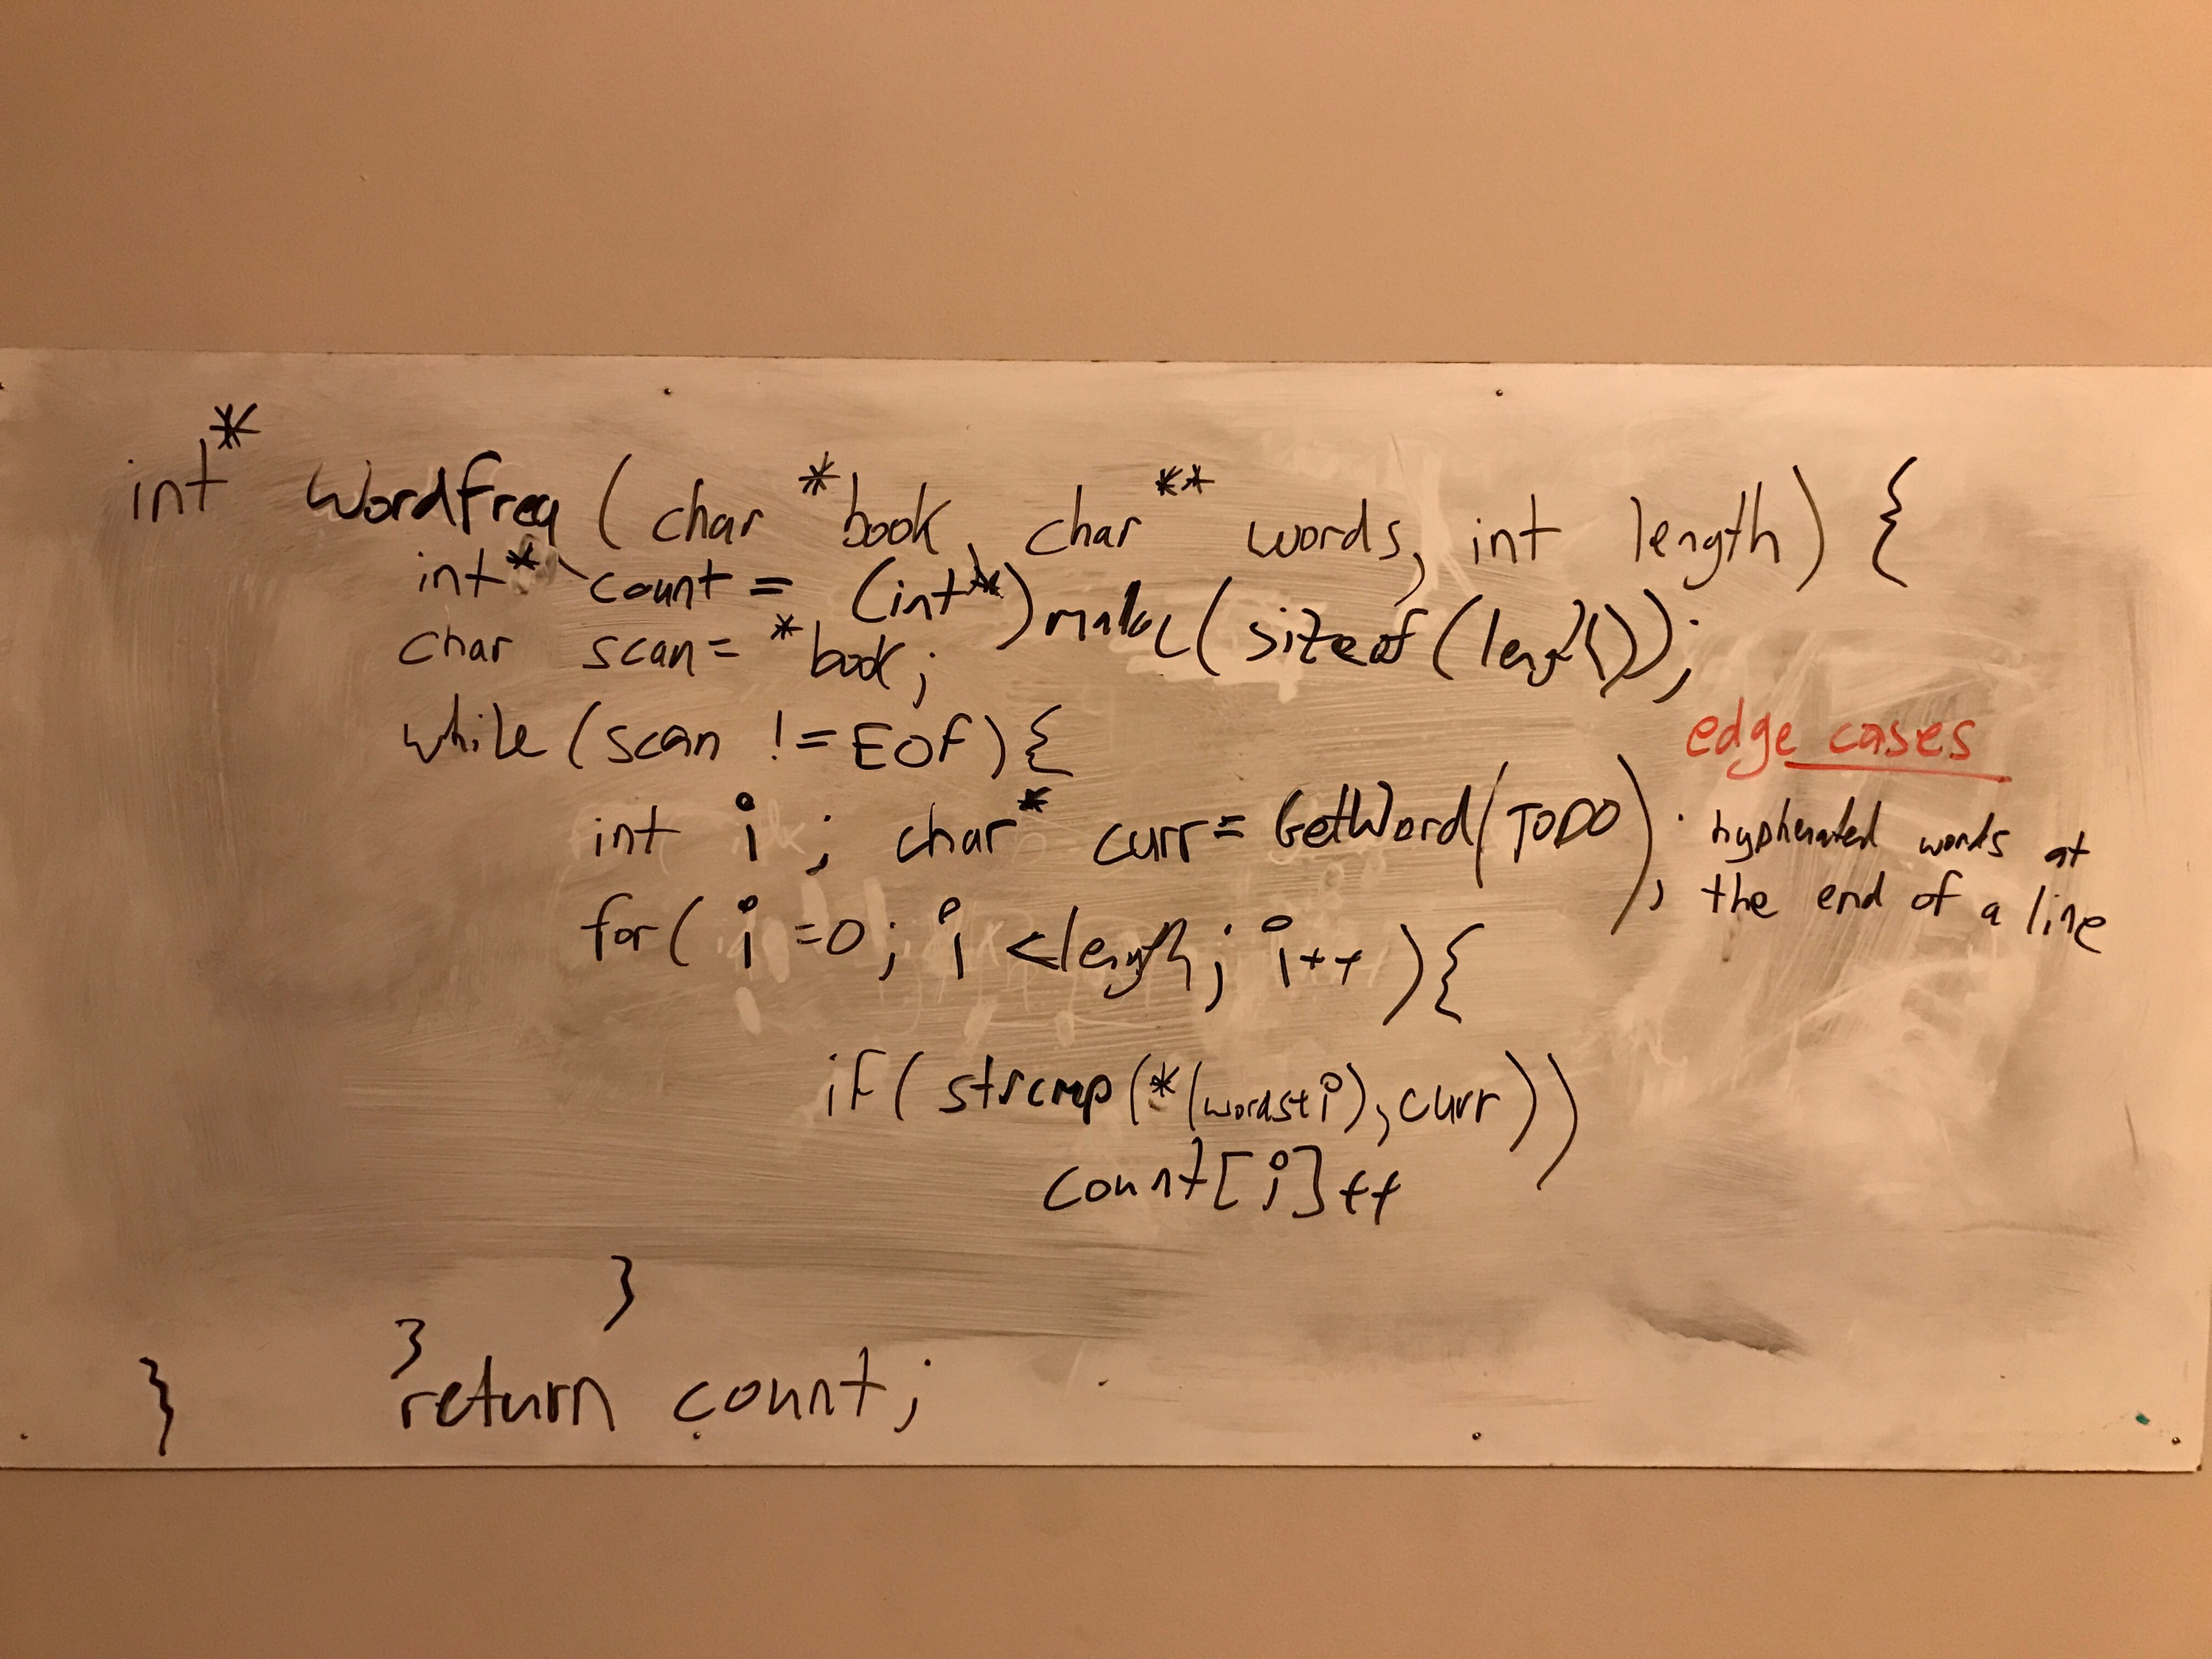 int* WordFreq(char *book, char** words, int length) {
int* count = (int*)malloc(sizeof(length));
char scan = *book;
while(scan != EOF){
int i; char* curr = GetWord(TODO);
for( i =0; i <length; i++ ){
if( strcmp(*(words+i), curr))
count[i]++
}
}
return count;
}
edge cases
· hyphenated words at
the end of a line